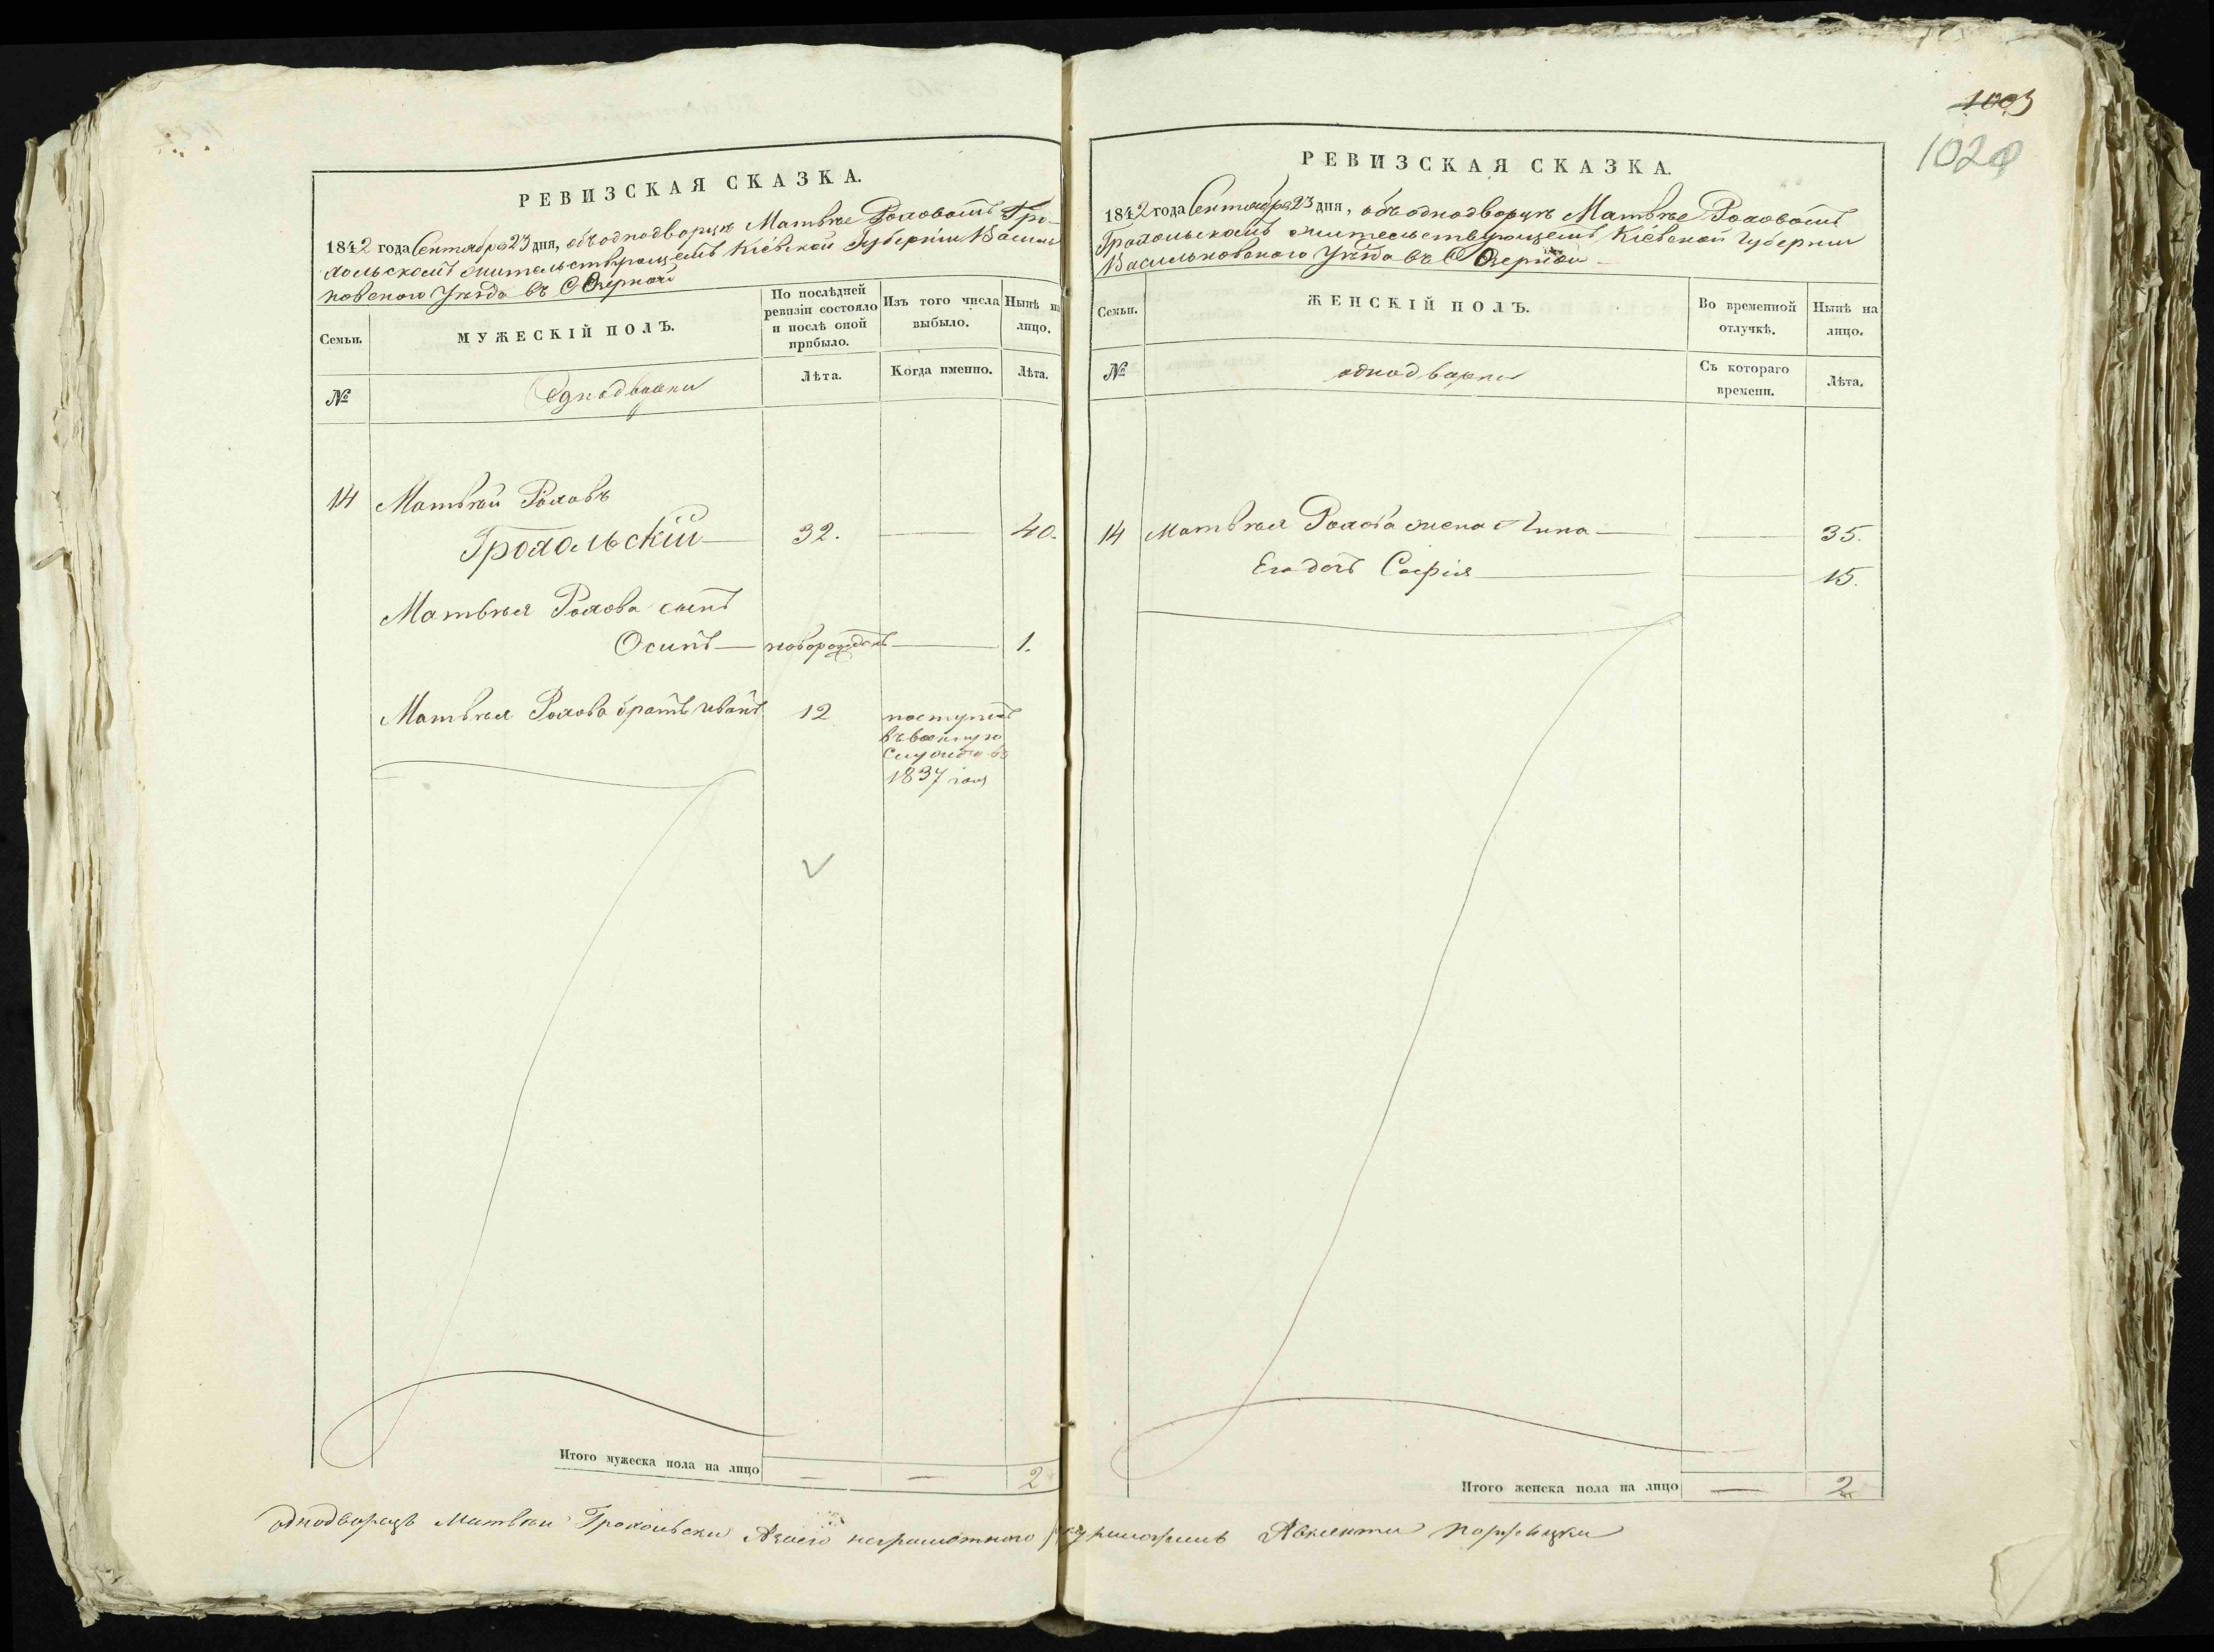 1003
1020
РЕВИЗСКАЯ СКАЗКА.
1842 года Сентября 23 дня, объ однодворцѣ Матвѣе Роховомъ Гро-
хольскомъ жительствующемъ Кіевской Губерніи Василь
ковского Уѣзда въ С Озерной
Семьи.
МУЖЕСКІЙ ПОЛЪ.
По послѣдней
ревизіи состояло
и послѣ оной
прибыло.
Изъ того числа
выбыло.
Нынѣ на
лицо.
№
Однодворки
Лѣта.
Когда именно.
Лѣта.
14 Матвѣй Роховъ
Грохольскій 32. 40.
Матвѣя Рохова сынъ
Осипъ новорожденъ 1.
Матвѣя Рохова братъ Иванъ 12 поступилъ
въ военную
Службу въ
1837 году
Итого мужеска пола на лицо — — 2
РЕВИЗСКАЯ СКАЗКА.
1842 года Сентября 23 дня, объ однодворцѣ Матвѣе Роховомъ
Грохольскомъ жительствующемъ Кіевской Губерніи
Васильковского Уѣзда въ С Озерной
Семьи.
ЖЕНСКІЙ ПОЛЪ.
Во временной
отлучкѣ.
Нынѣ на
лицо.
№
однодворки
Съ котораго
времени.
Лѣта.
14 Матвѣя Рохова жена Анна 35.
Его дочь Софія 15.
Итого женска пола на лицо — 2
однодворецъ Матвѣй Грохольски А за его неграмотного руку приложилъ Авксенти